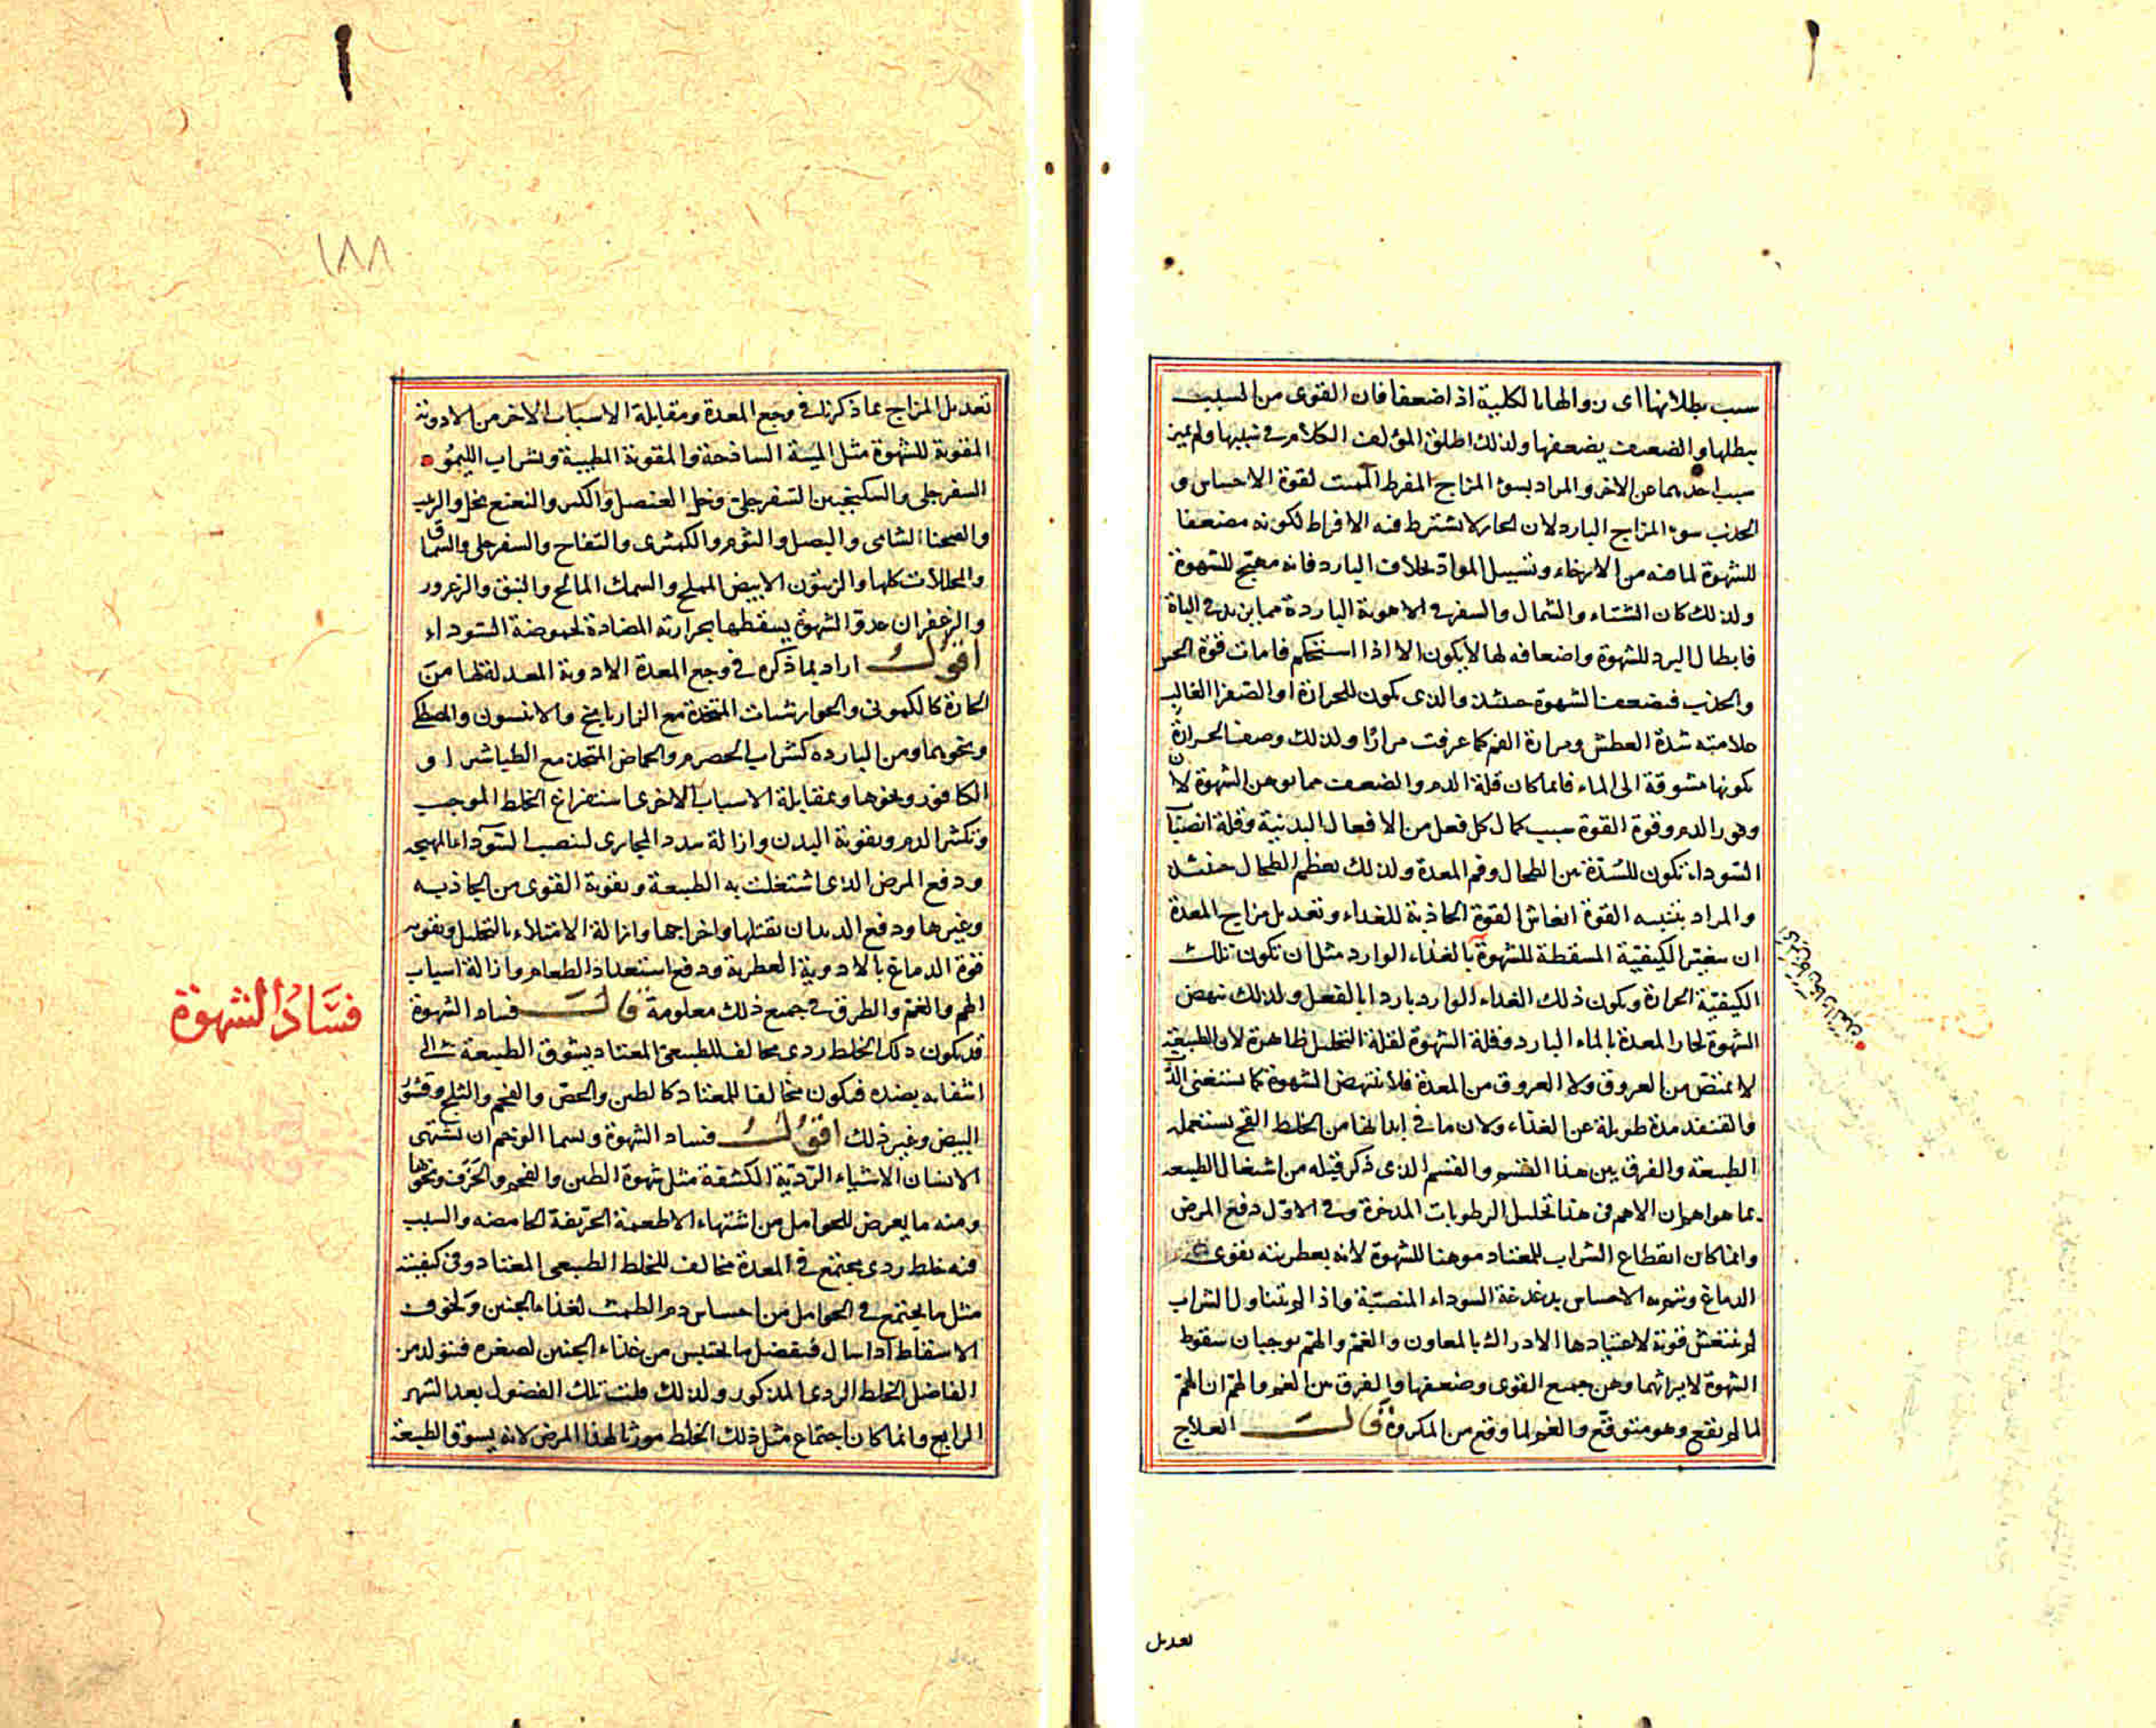 سبب بطلانها اى زوالها بالكلية اذ اضعفا فان القوى من السبب
يبطلها والضعيف يضعفها ولذلك اطلق المؤلف الكلام فى سببها ولم يميز
سبب احدهما عن الاخر والمراد بسوء المزاج المفرط المميت لقوة الاحساس و
الجذب سوء المزاج البارد لان الحار لا يشترط فيه الافراط لكونه مضعفا
للشهوة لما فيه من الارخاء وتسييل المواد بخلاف البارد فانه مهيج للشهوة
ولذلك كان الشتاء والشمال والسفر فى الاهوية الباردة مما يزيد فى الباة
فابطال البرد للشهوة واضعافه لها لا يكون الا اذا استحكم فامات قوة الحس
والجذب فيضعف الشهوة حينئذ والذى يكون للحرارة او الصفرا الغالب
علامته شدة العطش ومرارة الفم كما عرفت مرارا ولذلك وصف الحرارة
بكونها مشوقة الى الماء فانما كان قلة الدم والضعف مما يوهن الشهوة لان
وفور الدم وقوة القوة سبب كمال كل فعل من الافعال البدنية وقلة انصباب
السوداء تكون للسدة بين الطحال وفم المعدة ولذلك يعظم الطحال حينئذ
والمراد بتنبيه القوة انعاش القوة الجاذبة للغذاء وتعديل مزاج المعدة
ان يغير الكيفية المسقطة للشهوة بالغذاء الوارد مثل ان تكون تلك
الكيفية الحرارة ويكون ذلك الغذاء الوارد باردا بالفعل ولذلك ينهض
الشهوة لحار المعدة بالماء البارد وقلة الشهوة لقلة التحلل ظاهرة لان الطبيعة
لا تمتص من العروق ولا العروق من المعدة فلا تنتهض الشهوة كما يستغنى الدب
والقنفذ مدة طويلة عن الغذاء ولان ما فى ابدانها من الخلط الفج يستعمله
الطبيعة والفرق بين هذا القسم والقسم الذى ذكر قبله من اشتغال الطبيعة
بما هو اهم ان الاهم فى هذا تحليل الرطوبات المدخرة وفى الاول دفع المرض
وانما كان انقطاع الشراب للمعتاد موهنا للشهوة لانه بعطريته يقوى
الدماغ وتنبهه الاحساس بدغدغة السوداء المنصبة واذا لم يتناول الشراب
لم تنتعش قوته لاعتيادها الادراك بالمعاون والغم والهم يوجبان سقوط
الشهوة لايراثهما وهن جميع القوى وضعفها والفرق بين الغم والهم ان الهم
لما لم يقع وهو متوقع والغم لما وقع من المكروه قال العلاج
تعديل
١٨٨
تعديل المزاج بما ذكرنا فى وجع المعدة ومقابلة الاسباب الاخر من الادوية
المقوية للشهوة مثل الميبة الساذجة والمقوية المطيبة وشراب الليمو
السفرجلى والسكنجبين السفرجلى وخل العنصل والكبر والنعنع بخل والرب
والصحنا الشامى والبصل والثوم والكمثرى والتفاح والسفرجل والسماق
والمخللات كلها والزيتون الابيض المملح والسمك المالح والنبق والزعرور
والزعفران عدو الشهوة يسقطها بحرارته المضادة لحموضة السوداء
اقول اراد بما ذكره فى وجع المعدة الادوية المعدلة لها من
الحارة كالكمونى والجوارشنات المتخذة مع الرازيانج والانيسون والمصطكى
ونحوهما ومن الباردة كشراب الحصرم والحماض المتخذ مع الطباشير او
الكافور ونحوها وبمقابلة الاسباب الاخرى استفراغ الخلط الموجب
وتكثير الدم وبقوية البدن وازالة سدد المجارى لينصب السوداء المهيجه
ودفع المرض الذى اشتغلت به الطبيعة وتقوية القوى من الجاذبه
وغيرها ودفع الديدان بقتلها واخراجها وازالة الامتلاء بالتحليل وتقويه
قوة الدماغ بالادوية العطرية ودفع استعداد الطعام وازالة اسباب
الهم والغم والطرق فى جميع ذلك معلومة قال فساد الشهوة
قد يكون ذلك لخلط ردى مخالف للطبيعى المعتاد يشوق الطبيعة الى
انتفائه بضده فيكون مخالفا للمعتاد كالطين والجص والفحم والثلج وقشور
البيض وغير ذلك اقول فساد الشهوة ويسما الوحم ان يشتهى
الانسان الاشياء الردية الكشفة مثل شهوة الطين والفحم والخزف ونحوها
ومنه ما يعرض للحوامل من اشتهاء الاطعمة الحريفة الحامضه والسبب
فيه خلط ردى يجتمع فى المعدة مخالف للخلط الطبيعى المعتاد وفى كيفيته
مثل ما يجتمع فى الحوامل من احتباس دم الطمث لغذاء الجنين ولخوف
الاسقاط اذا سال فيفضل ما يحتبس من غذاء الجنين لصغره فيتولد من
الفاضل الخلط الردى المذكور ولذلك قلت تلك الفضول بعد الشهر
الرابع وانما كان اجتماع مثل ذلك الخلط مورثا لهذا المرض لانه يسوق الطبيعة
فساد الشهوة